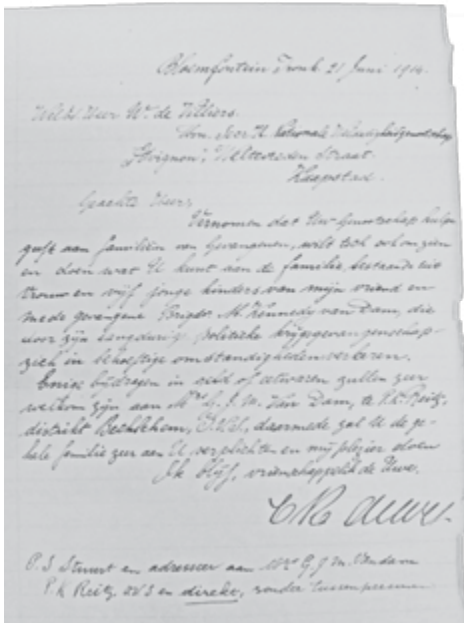 Bloemfontein Tronk 21 Juni 1914.
Weled. Heer W. de Villiers.
Hon. Secr. U. Nationale
Avignon, Weltevreden Straat.
Kaapstad.
Geachte Heer,
Vernomen dat Uw Genootschap hulp
geeft aan familien van Gevangenen, wilt toch ook om zien
en doen wat U kunt aan de familie, bestaande uit
vrouw en vijf jonge kinders van mijn vriend en
mede gevangene M. Kennedy van Dam, die
door zijn langdurig politieke krijgsgevangenschap
zich in behoeftige omstandigheden verkeren.
Enige bijdragen in geld of eetwaren zullen zeer
welkom zijn aan Mrs G. J. M. Van Dam, te P.K. Reitz,
distrikt Bethlehem, daarmede zal U de ge-
hele familie zeer aan U verplichten en mij plezier doen
Ik blijf, vriendschappelik de Uwe.
P.S Stuurt en adresseer aan Mrs G. J M. Van dam
P.K Reitz OVS en direkt, zonder tussenpersonen